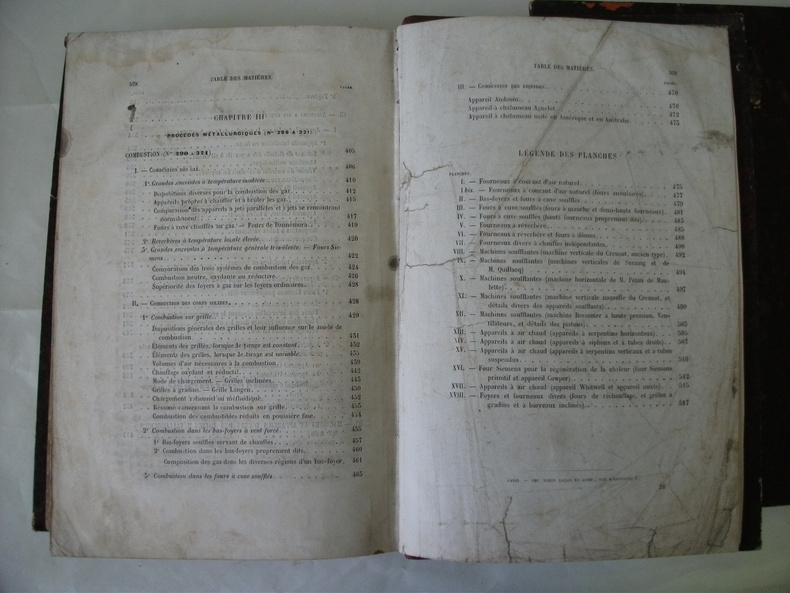 TABLE DES MATIÈRES.
CHAPITRE III
PROCÉDÉS MÉTALLURGIQUES (Nos 290 A 321).
COMBUSTION (Nos 290 A 321) 405
I. — Combustion des gaz. 406
1° Grandes enceintes à température modérée. 410
Dispositions diverses pour la combustion des gaz. 412
Appareils propres à chauffer et à brûler les gaz. 415
Comparaison des appareils à jets parallèles et à jets se rencontrant
normalement. 417
Fours à cuve chauffés au gaz. — Fours de Tonnemora. 419
2° Réverbères à température locale élevée. 420
3° Grandes enceintes à température générale très-élevée. — Fours Sie-
mens. 422
Comparaison des trois systèmes de combustion des gaz. 424
Combustion neutre, oxydante ou réductive. 426
Supériorité des foyers à gaz sur les foyers ordinaires. 428
II. — Combustion des corps solides. 428
1° Combustion sur grille. 429
Dispositions générales des grilles et leur influence sur le mode de
combustion. 431
Éléments des grilles, lorsque le tirage est constant.
Éléments des grilles, lorsque le tirage est variable.
Volumes d'air nécessaires à la combustion.
Chauffage oxydant et réductif.
Mode de chargement. — Grilles inclinées.
Grilles à gradins. — Grille Langen.
Chargement rationnel ou méthodique.
Résumé concernant la combustion sur grille.
Combustion des combustibles réduits en poussière fine.
2° Combustion dans les bas-foyers à vent forcé. 455
1° Bas-foyers soufflés servant de chauffes. 457
2° Combustion dans les bas-foyers proprement dits. 460
Composition des gaz dans les diverses régions d'un bas-foyer. 461
3° Combustion dans les fours à cuve soufflés 465
TABLE DES MATIÈRES.
III. — Combustion des liquides. 470
Appareil Audouin. 470
Appareil à chalumeau Agnelet. 472
Appareil à chalumeau usité en Amérique et en Australie. 473
LÉGENDE DES PLANCHES
PLANCHES.
I. — Fourneaux à courant d'air naturel. 475
I bis. — Fourneaux à courant d'air naturel (fours annulaires). 477
II. — Bas-foyers et fours à cuve soufflés 479
III. — Fours à cuve soufflés (fours à manche et demi-hauts fourneaux). 481
IV. — Fours à cuve soufflés (hauts fourneaux proprement dits). 483
V. — Fourneaux à réverbère. 485
VI. — Fourneaux à réverbère et fours à dômes. 488
VII. — Fourneaux divers à chauffes indépendantes. 490
VIII. — Machines soufflantes (machine verticale du Creusot, ancien type). 492
IX. — Machines soufflantes (machines verticales de Seraing et de
M. Quillacq) 494
X. — Machines soufflantes (machine horizontale de M.
497
XI. — Machines soufflantes (machine verticale nouvelle du Creusot, et
détails divers des appareils soufflants).
XII. — Machines soufflantes (machine Bessemer à haute pression. Ven-
tilateurs, et détails des pistons). 503
XIII. — Appareils à air chaud (appareils à serpentins horizontaux). 505
XIV. — Appareils à air chaud (appareils à siphons et à tubes droits). 507
XV. — Appareils à air chaud (appareils à serpentins verticaux et à tubes
suspendus. 510
XVI. — Four Siemens pour la régénération de la chaleur (four Siemens
primitif et appareil Cowper) 512
XVII. — Appareils à air chaud (appareil Whitwell et appareil mixte). 515
XVIII. — Foyers et fourneaux divers (fours de réchauffage, et grilles à
gradins et à barreaux inclinés). 517